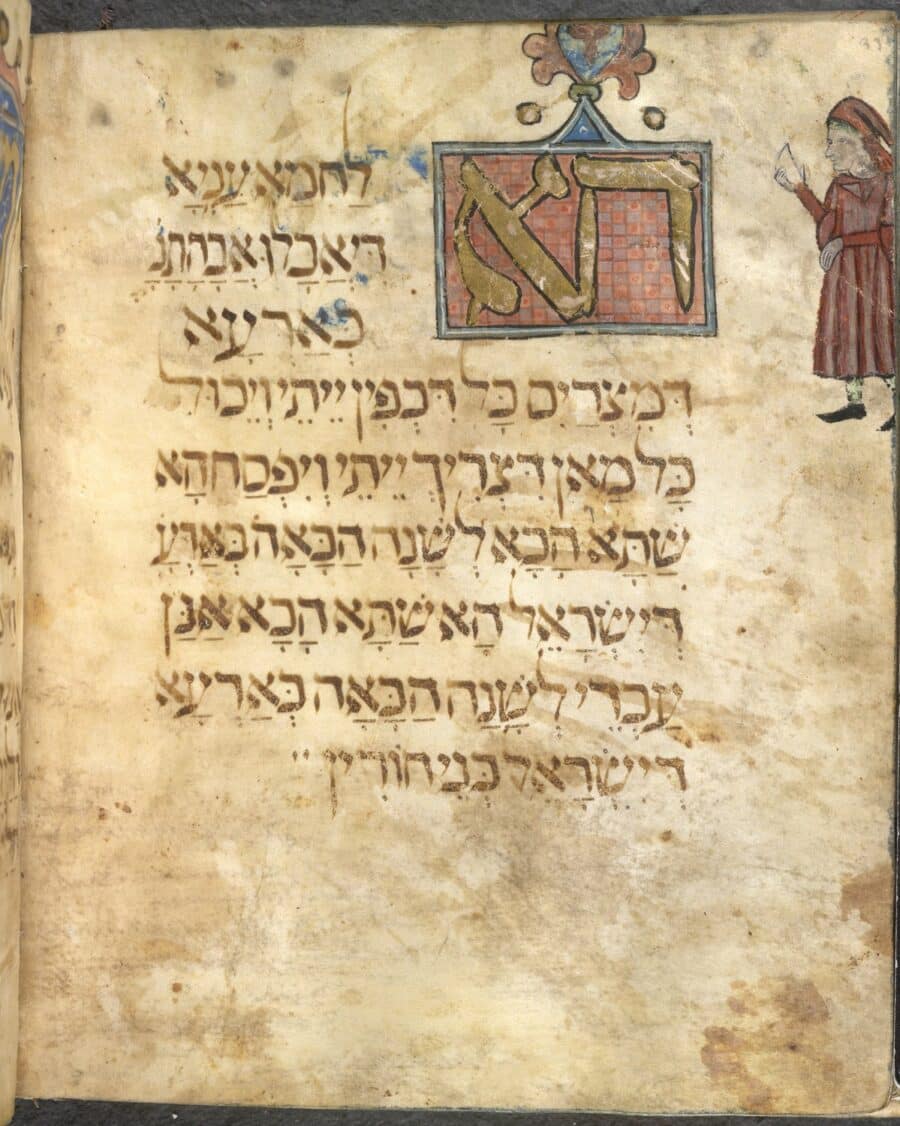 הא
לחמא עניא
די אכלו אבהתנ
בארעא
דמצרים כל דכפין ייתי ויכול
כל מאן דצריך ייתי ויפסח הא
שתא הכא לשנה הבאה בארע
דישראל הא שתא הכא אנן
עבדי לשנה הבאה בארעא
דישראל בני חורין